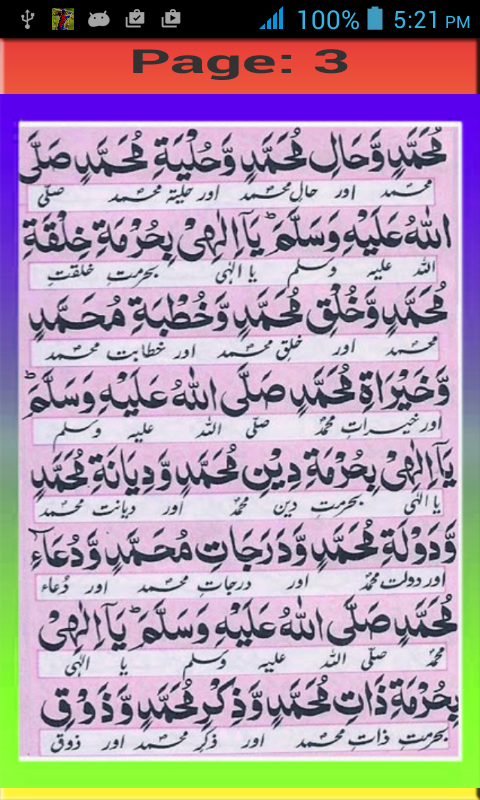 100% 5:21 PM
Page: 3
مُحَمَّدٍ وَّحَالِ مُحَمَّدٍ وَّحُلْيَةِ مُحَمَّدٍ صَلَّى
محمد اور حالِ محمد اور حلیۃ محمد صلّی
اللهُ عَلَيْهِ وَسَلَّمَ ؕ يَآ اِلٰهِىْ بِحُرْمَةِ خِلْقَةِ
اللہ علیہ وسلم یا الٰہی بحرمتِ خلقتِ
مُحَمَّدٍ وَّخُلْقِ مُحَمَّدٍ وَّخُطْبَةِ مُحَمَّدٍ
محمد اور خلق محمد اور خطابت محمد
وَّخَيْرَاةِ مُحَمَّدٍ صَلَّى اللهُ عَلَيْهِ وَسَلَّمَ ؕ
اور خیراتِ محمد صلّی اللہ علیہ وسلم
يَآ اِلٰهِىْ بِحُرْمَةِ دِيْنِ مُحَمَّدٍ وَّدِيَانَةِ مُحَمَّدٍ
یا الٰہی بحرمتِ دین محمد اور دیانت محمد
وَّدَوْلَةِ مُحَمَّدٍ وَّدَرَجَاتِ مُحَمَّدٍ وَّدُعَآءِ
اور دولت محمد اور درجاتِ محمد اور دُعاء
مُحَمَّدٍ صَلَّى اللهُ عَلَيْهِ وَسَلَّمَ ؕ يَآ اِلٰهِىْ
محمد صلّی اللہ علیہ وسلم یا الٰہی
بِحُرْمَةِ ذَاتِ مُحَمَّدٍ وَّذِكْرِ مُحَمَّدٍ وَّذَوْقِ
بحرمتِ ذاتِ محمد اور ذکرِ محمد اور ذوق